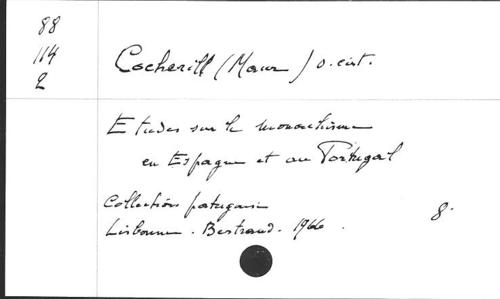 88
114
2
Cocherill (Maur) o. cist.
Etudes sur le monachisme
en Espagne et au Portugal
Collection portugaise
Lisbonne. Bertrand. 1966. 8°